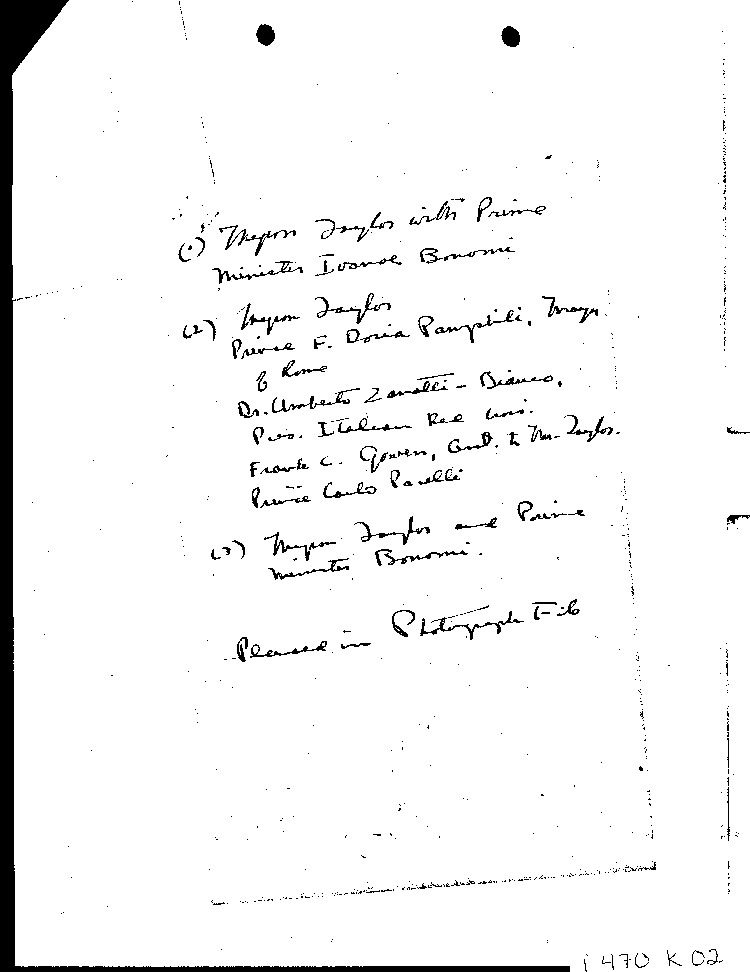 (1) Myron Taylor with Prime
Minister Ivanoe Bonomi
(2) Myron Taylor
Prince F. Doria Pamphili, Mayor
of Rome
Dr. Umberto Zanotti-Bianco,
Pres. Italian Red Cross.
Frank C. Gowen, Asst. to Mr. Taylor.
Prince Carlo Pacelli
(3) Myron Taylor and Prime
Minister Bonomi.
Placed in Photograph File
1470 K 02